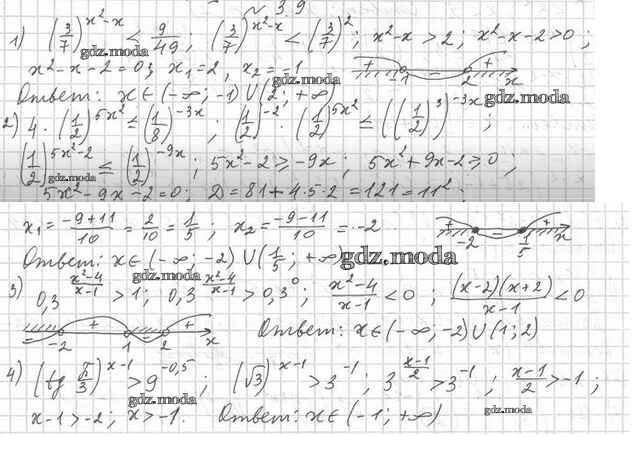 ~ 39
1) (3/7)^(x²-x) < 9/49 ; (3/7)^(x²-x) < (3/7)² ; x²-x > 2 ; x²-x-2 > 0 ;
gdz.moda
x²-x-2=0 ; x₁=2, x₂=-1 + -1 - 2 + x
gdz.moda
Ответ: x∈(-∞; -1)∪(2; +∞) gdz.moda
2) 4·(1/2)^(5x²) ≤ (1/8)^(-3x) ; (1/2)^(-2)·(1/2)^(5x²) ≤ ((1/2)³)^(-3x) ;
(1/2)^(5x²-2) ≤ (1/2)^(-9x) ; 5x²-2 ≥ -9x ; 5x²+9x-2 ≥ 0 ;
gdz.moda
5x²-9x-2=0 ; D=81+4·5·2=121=11² ;
x₁=(-9+11)/10=2/10=1/5 ; x₂=(-9-11)/10=-2 + -2 - 1/5 + x
Ответ: x∈(-∞; -2)∪(1/5; +∞) gdz.moda
gdz.moda
3) 0,3^((x²-4)/(x-1)) > 1 ; 0,3^((x²-4)/(x-1)) > 0,3⁰ ; (x²-4)/(x-1) < 0 ; ((x-2)(x+2))/(x-1) < 0
- -2 + 1 - 2 + x Ответ: x∈(-∞; -2)∪(1; 2)
4) (tg π/3)^(x-1) > 9^(-0,5) ; (√3)^(x-1) > 3^(-1) ; 3^((x-1)/2) > 3^(-1) ; (x-1)/2 > -1 ;
gdz.moda
x-1 > -2 ; x > -1. Ответ: x∈(-1; +∞) gdz.moda